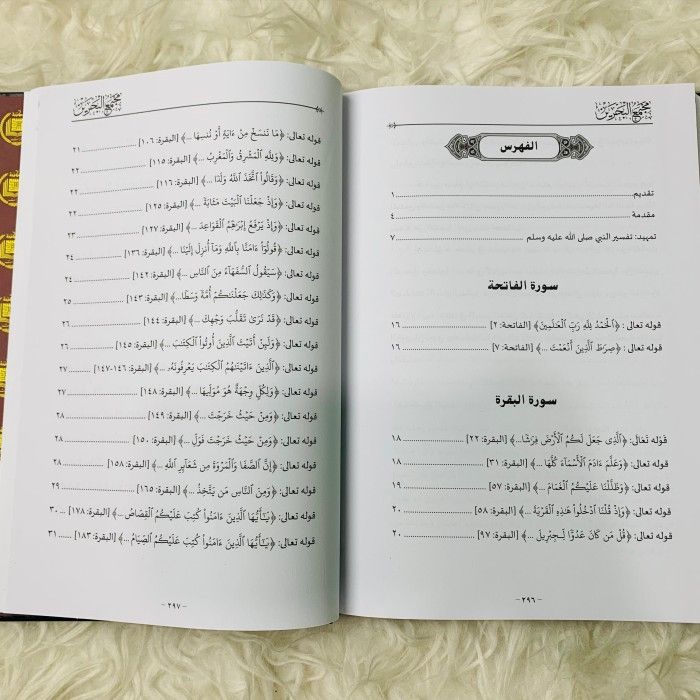 مجمع البحرين
الفهرس
تقديم ........ ١
مقدمة ........ ٤
تمهيد: تفسير النبي صلى الله عليه وسلم ........ ٧
سورة الفاتحة
قوله تعالى : ﴿ٱلۡحَمۡدُ لِلَّهِ رَبِّ ٱلۡعَٰلَمِينَ﴾ [الفاتحة: ٢] ........ ١٦
قوله تعالى : ﴿صِرَٰطَ ٱلَّذِينَ أَنۡعَمۡتَ ...﴾ [الفاتحة: ٧] ........ ١٦
سورة البقرة
قوله تعالى: ﴿ٱلَّذِي جَعَلَ لَكُمُ ٱلۡأَرۡضَ فِرَٰشٗا...﴾ [البقرة: ٢٢] ........ ١٨
قوله تعالى: ﴿وَعَلَّمَ ءَادَمَ ٱلۡأَسۡمَآءَ كُلَّهَا ...﴾ [البقرة: ٣١] ........ ١٨
قوله تعالى: ﴿وَظَلَّلۡنَا عَلَيۡكُمُ ٱلۡغَمَامَ ...﴾ [البقرة: ٥٧] ........ ١٩
قوله تعالى: ﴿وَإِذۡ قُلۡنَا ٱدۡخُلُواْ هَٰذِهِ ٱلۡقَرۡيَةَ ...﴾ [البقرة: ٥٨] ........ ٢٠
قوله تعالى: ﴿قُلۡ مَن كَانَ عَدُوّٗا لِّجِبۡرِيلَ ...﴾ [البقرة: ٩٧] ........ ٢٠
- ٢٩٦ -
مجمع البحرين
قوله تعالى: ﴿مَا نَنسَخۡ مِنۡ ءَايَةٍ أَوۡ نُنسِهَا ...﴾ [البقرة: ١٠٦] ........ ٢١
قوله تعالى: ﴿وَلِلَّهِ ٱلۡمَشۡرِقُ وَٱلۡمَغۡرِبُ ...﴾ [البقرة: ١١٥] ........ ٢٢
قوله تعالى: ﴿وَقَالُواْ ٱتَّخَذَ ٱللَّهُ وَلَدٗا ...﴾ [البقرة: ١١٦] ........ ٢٢
قوله تعالى: ﴿وَإِذۡ جَعَلۡنَا ٱلۡبَيۡتَ مَثَابَةٗ ...﴾ [البقرة: ١٢٥] ........ ٢٢
قوله تعالى: ﴿وَإِذۡ يَرۡفَعُ إِبۡرَٰهِـۧمُ ٱلۡقَوَاعِدَ ...﴾ [البقرة: ١٢٧] ........ ٢٣
قوله تعالى: ﴿قُولُوٓاْ ءَامَنَّا بِٱللَّهِ وَمَآ أُنزِلَ إِلَيۡنَا ...﴾ [البقرة: ١٣٦] ........ ٢٤
قوله تعالى: ﴿سَيَقُولُ ٱلسُّفَهَآءُ مِنَ ٱلنَّاسِ ...﴾ [البقرة: ١٤٢] ........ ٢٤
قوله تعالى: ﴿وَكَذَٰلِكَ جَعَلۡنَٰكُمۡ أُمَّةٗ وَسَطٗا...﴾ [البقرة: ١٤٣] ........ ٢٥
قوله تعالى: ﴿قَدۡ نَرَىٰ تَقَلُّبَ وَجۡهِكَ ...﴾ [البقرة: ١٤٤] ........ ٢٦
قوله تعالى: ﴿وَلَئِنۡ أَتَيۡتَ ٱلَّذِينَ أُوتُواْ ٱلۡكِتَٰبَ ...﴾ [البقرة: ١٤٥] ........ ٢٦
قوله تعالى: ﴿ٱلَّذِينَ ءَاتَيۡنَٰهُمُ ٱلۡكِتَٰبَ يَعۡرِفُونَهُۥ ...﴾ [البقرة: ١٤٦-١٤٧] ........ ٢٧
قوله تعالى: ﴿وَلِكُلّٖ وِجۡهَةٌ هُوَ مُوَلِّيهَا ...﴾ [البقرة: ١٤٨] ........ ٢٧
قوله تعالى: ﴿وَمِنۡ حَيۡثُ خَرَجۡتَ ...﴾ [البقرة: ١٤٩] ........ ٢٨
قوله تعالى: ﴿وَمِنۡ حَيۡثُ خَرَجۡتَ فَوَلِّ ...﴾ [البقرة: ١٥٠] ........ ٢٨
قوله تعالى: ﴿إِنَّ ٱلصَّفَا وَٱلۡمَرۡوَةَ مِن شَعَآئِرِ ٱللَّهِ ...﴾ [البقرة: ١٥٨] ........ ٢٨
قوله تعالى: ﴿وَمِنَ ٱلنَّاسِ مَن يَتَّخِذُ ...﴾ [البقرة: ١٦٥] ........ ٢٩
قوله تعالى: ﴿يَٰٓأَيُّهَا ٱلَّذِينَ ءَامَنُواْ كُتِبَ عَلَيۡكُمُ ٱلۡقِصَاصُ ...﴾ [البقرة: ١٧٨] ... ٣٠
قوله تعالى: ﴿يَٰٓأَيُّهَا ٱلَّذِينَ ءَامَنُواْ كُتِبَ عَلَيۡكُمُ ٱلصِّيَامُ ...﴾ [البقرة: ١٨٣] ........ ٣١
- ٢٩٧ -